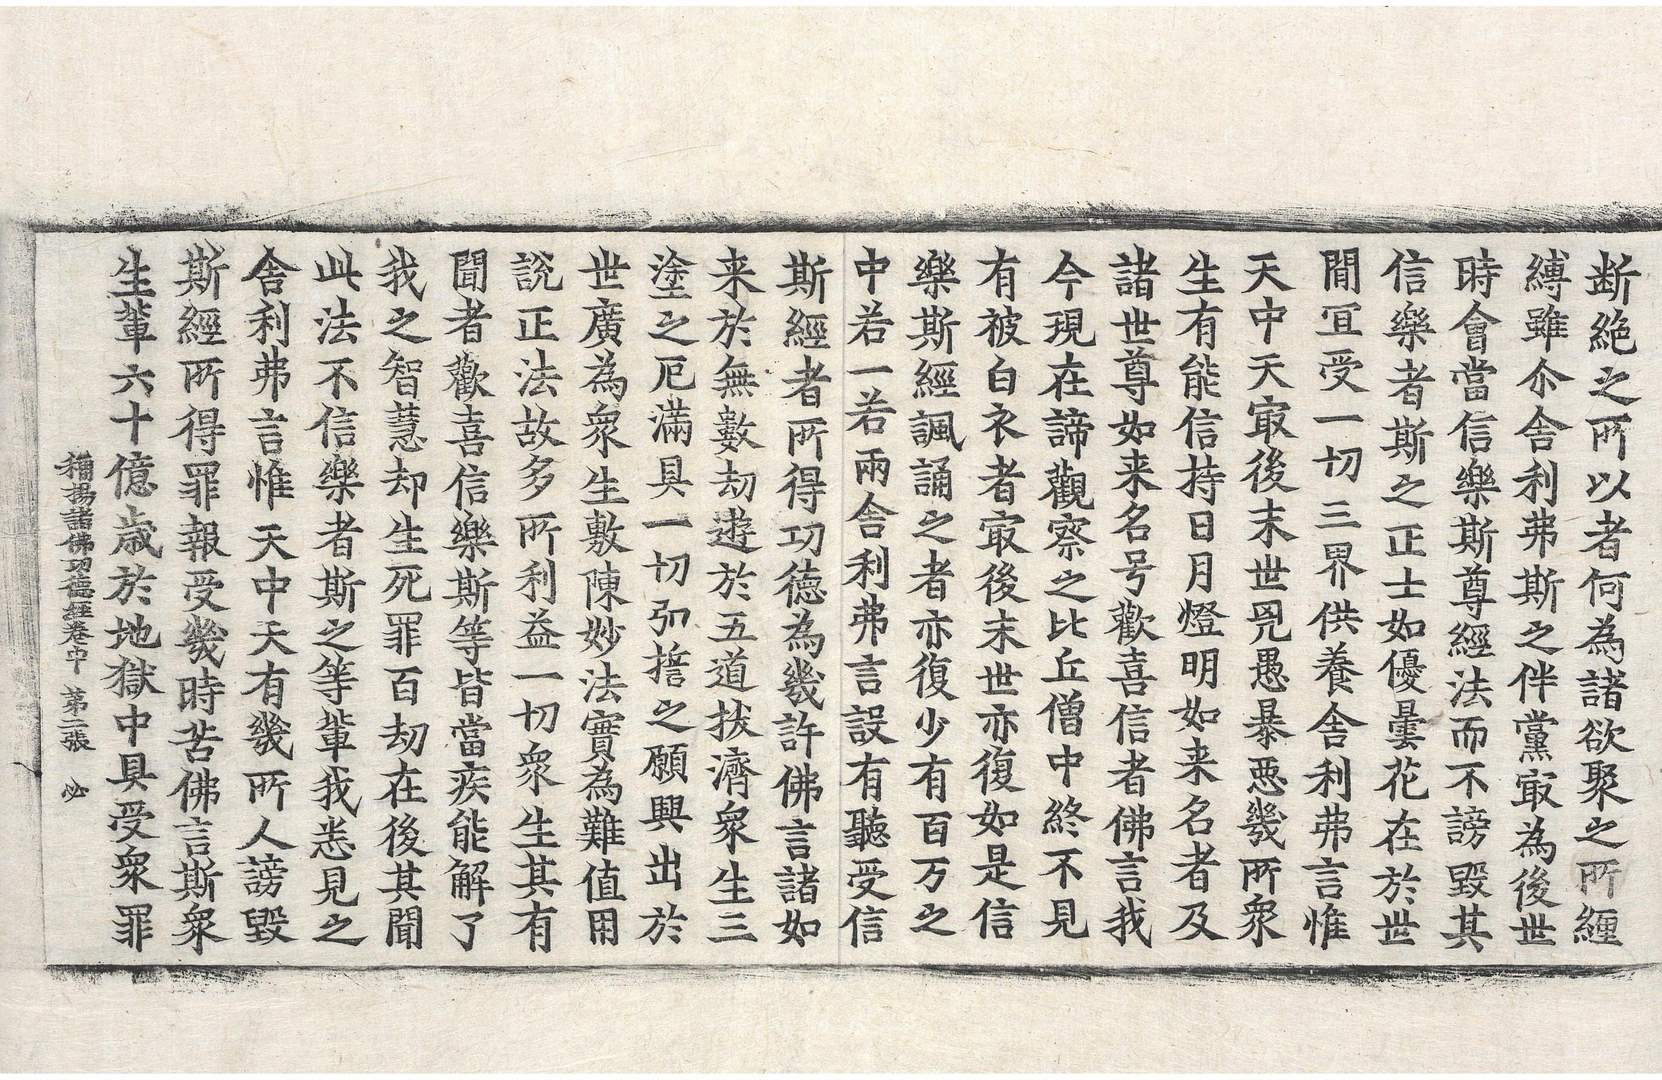 断絶之所以者何為諸欲聚之所纒
縛雖尒舍利弗斯之伴黨冣為後世
時會當信樂斯尊經法而不謗毀其
信樂者斯之正士如優曇花在於世
間冝受一切三界供養舍利弗言惟
天中天冣後末世㐫愚暴惡幾所衆
生有能信持日月燈明如来名者及
諸世尊如来名号歡喜信者佛言我
今現在諦觀察之比丘僧中終不見
有被白衣者冣後末世亦復如是信
樂斯經諷誦之者亦復少有百万之
中若一若兩舍利弗言設有聽受信
斯經者所得功德為幾許佛言諸如
来於無數劫遊於五道拔濟衆生三
塗之厄滿具一切弘誓之願興出於
世廣為衆生敷陳妙法實為難值用
說正法故多所利益一切衆生其有
聞者歡喜信樂斯等皆當疾能解了
我之智慧却生死罪百劫在後其聞
此法不信樂者斯之等輩我悉見之
舍利弗言惟天中天有幾所人謗毀
斯經所得罪報受幾時苦佛言斯衆
生輩六十億歲於地獄中具受衆罪
稱揚諸佛功德經卷中 第二張 必